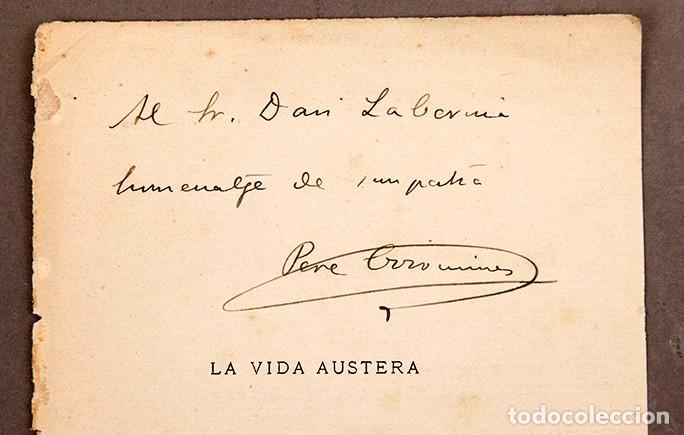 Al Sr. Dari Labernia
homenatge de simpatia
Pere Coromines
LA VIDA AUSTERA
todocoleccion